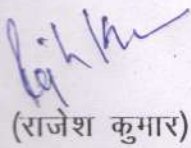 (राजेश कुमार)